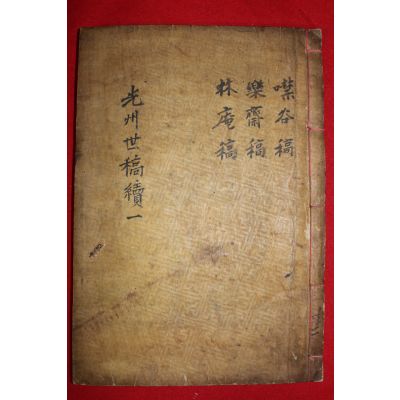 谷稿
樂齋稿
林庵稿
光州世稿續一